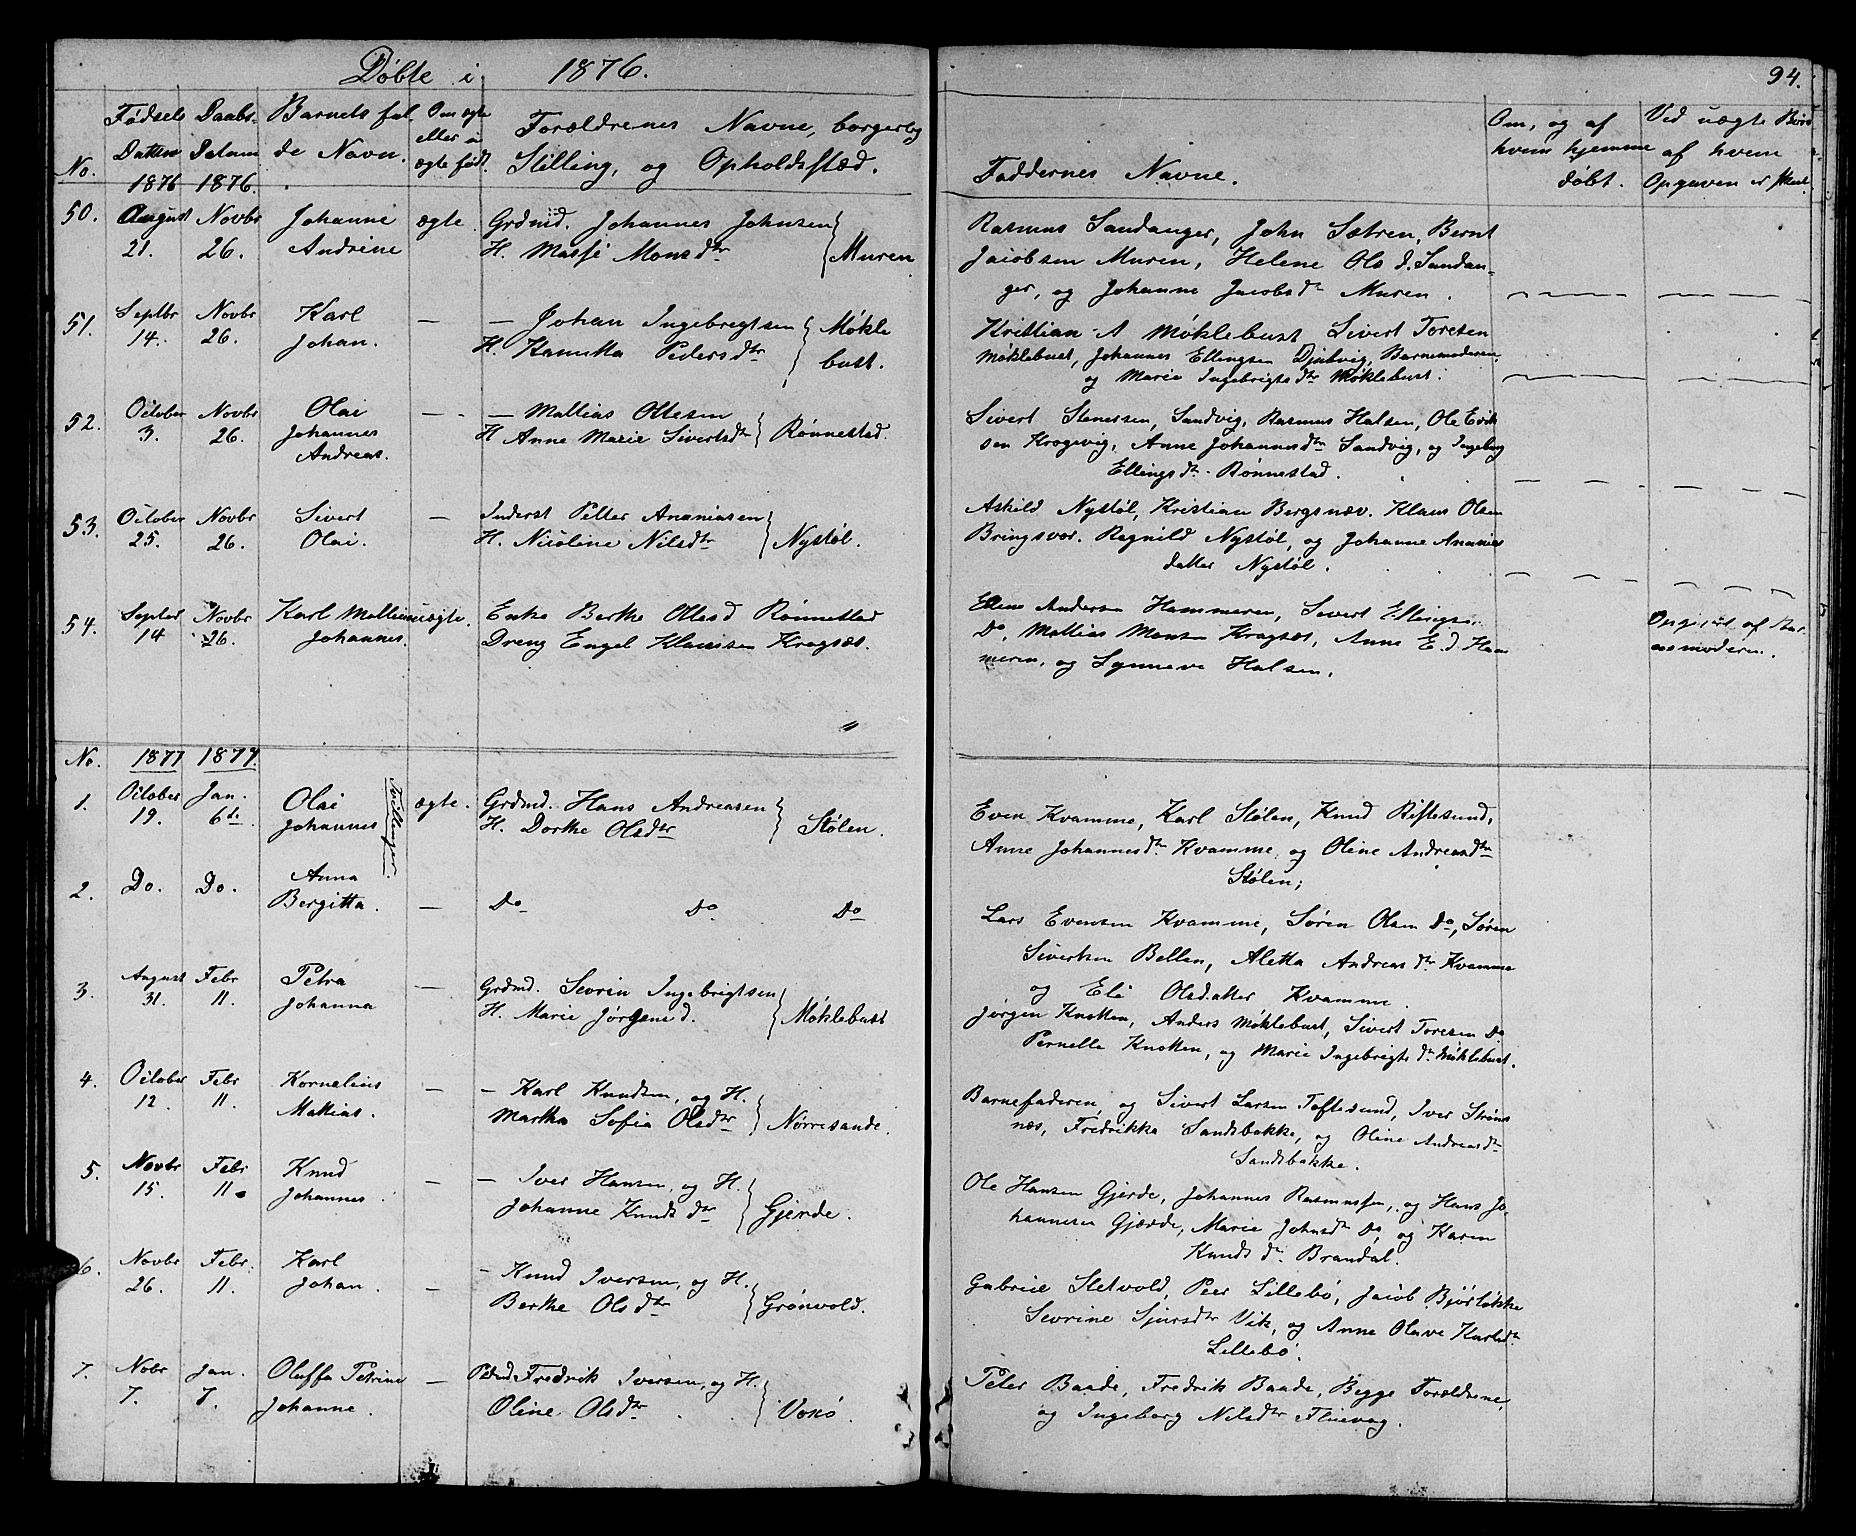 Døbte i 1876.
94.
No.
Fødsels Datum 1876
Daabs- Datum 1876.
Barnets ful de Navn.
Om ægte eller u ægte født.
Forældrenes Navne, borgerlig
Stilling, og Opholdssted.
Faddernes Navne.
Om, og af
hvem hjemme
døbt.
Ved uægte
af hvem
Opgaven er
50. August 21. Novbr 26. Johanne Andrine ægte. Grdmd. Johannes Johnsen
H. Massi Monsdtr } Muren
Rasmus Sandanger, John Sætren, Bernt
Jacobsen Muren, Helene Ols d. Sandan-
ger, og Johanne Jacobsdtr Muren.
51. Septbr 14. Novbr 26. Karl Johan. — — Johan Ingebregtsen
H. Kanutta Pedersdtr } Møkle bust.
Kristian A Møklebust Sivert Toresen
Møklebust, Johannes Ellingsen Djubvig, Barnemoderen,
og Marie Ingebrigtsdtr Møklebust.
52. October 3. Novbr 26. Olai Johannes Andreas. — — Mattias Ottesen
H. Anne Marie Sivertsdtr } Rønnestad.
Sivert Stenersen, Sandvig, Rasmus Halsen, Ole Erik
sen Krogevig, Anne Johannesdtr Sandvig, og Ingeborg
Ellingsdtr Rønnestad.
53. October 25. Novbr 26. Sivert Olai. — Inderst Petter Ananiasen
H. Nicoline Nilsdtr } Nystøl.
Askild Nystøl, Kristian Bergsnæv. Klaus Olsen
Bringsvor. Ragnild Nystøl, og Johanne Ananias
datter Nystøl.
54. Septer 14 Novbr 26. Karl Mattias Johannes. uægte. Enke Berthe Ottesd Rønnestad
Dreng Engel Klausen Kragsæt.
Elias Andersen Hammeren, Sivert Ellingsen
Do, Mattias Monsen Kragsæt, Anne E. d. Ham
meren, og Synneve Halsen.
Opgivet af Bar
nemoderen.
No. 1877 1877.
1. October 19. Jan. 6te Olai Johannes Tvillinger. ægte. Grdmd. Hans Andreasen
H. Dorthe Olsdtr } Stølen.
Even Kvamme, Karl Stølen, Knud Riftesund,
Anne Johannesdtr Kvamme, og Oline Andreasdtr
Stølen;
2. Do. Do. Anna Bergitta. — Do Do Do
Lars Evensen Kvamme, Søren Olsen Do, Søren
Sivertsen Bellen, Aletta Andreasdtr Kvamme
og Eli Olsdatter Kvamme.
3. August 31. Febr 11. Petra Johanna — Grdmd. Sevrin Ingebrigtsen
H. Marie Jørgens d. } Møklebust
Jørgen Knotten, Anders Møklebust, Sivert Toresen Do
Pernelle Knotten, og Marie Ingebrigtsdtr Møklebust.
4. October 12. Febr 11. Kornelius Mattias. — — Karl Knudsen, og H.
Martha Sofia Olsdtr } Nørresande.
Barnefaderen, og Sivert Larsen Toftesund, Iver Strøms
næs, Fredrikka Sandsbakke, og Oline Andreasdtr
Sandsbakke.
5. Novbr 15. Febr 11. Knud Johannes. — — Iver Hansen, og H.
Johanne Knudsdtr } Gjerde.
Ole Hansen Gjerde, Johannes Rasmussen, og Hans Jo-
hannesen Gjærde, Marie Johnsdtr Do, og Karen
Knudsdtr Brandal.
6. Novbr 26. Febr. 11. Karl Johan. — — Knud Iversen, og H.
Berthe Olsdtr } Grønvold.
Gabriel Sletvold, Peer Lillebø, Jacob Bjørløkke
Sevrine Sjursdtr Vik, og Anne Olave Karlsdtr
Lillebø.
7. Nobr 7. Jan. 7. Oluffa Petrine Johanne. — Fredrik Iversen, og H.
Oline Olsdtr } Voxø.
Peter Baade, Fredrik Baade, Begge Forældrene,
og Ingeborg Nilsdtr Fluevog.